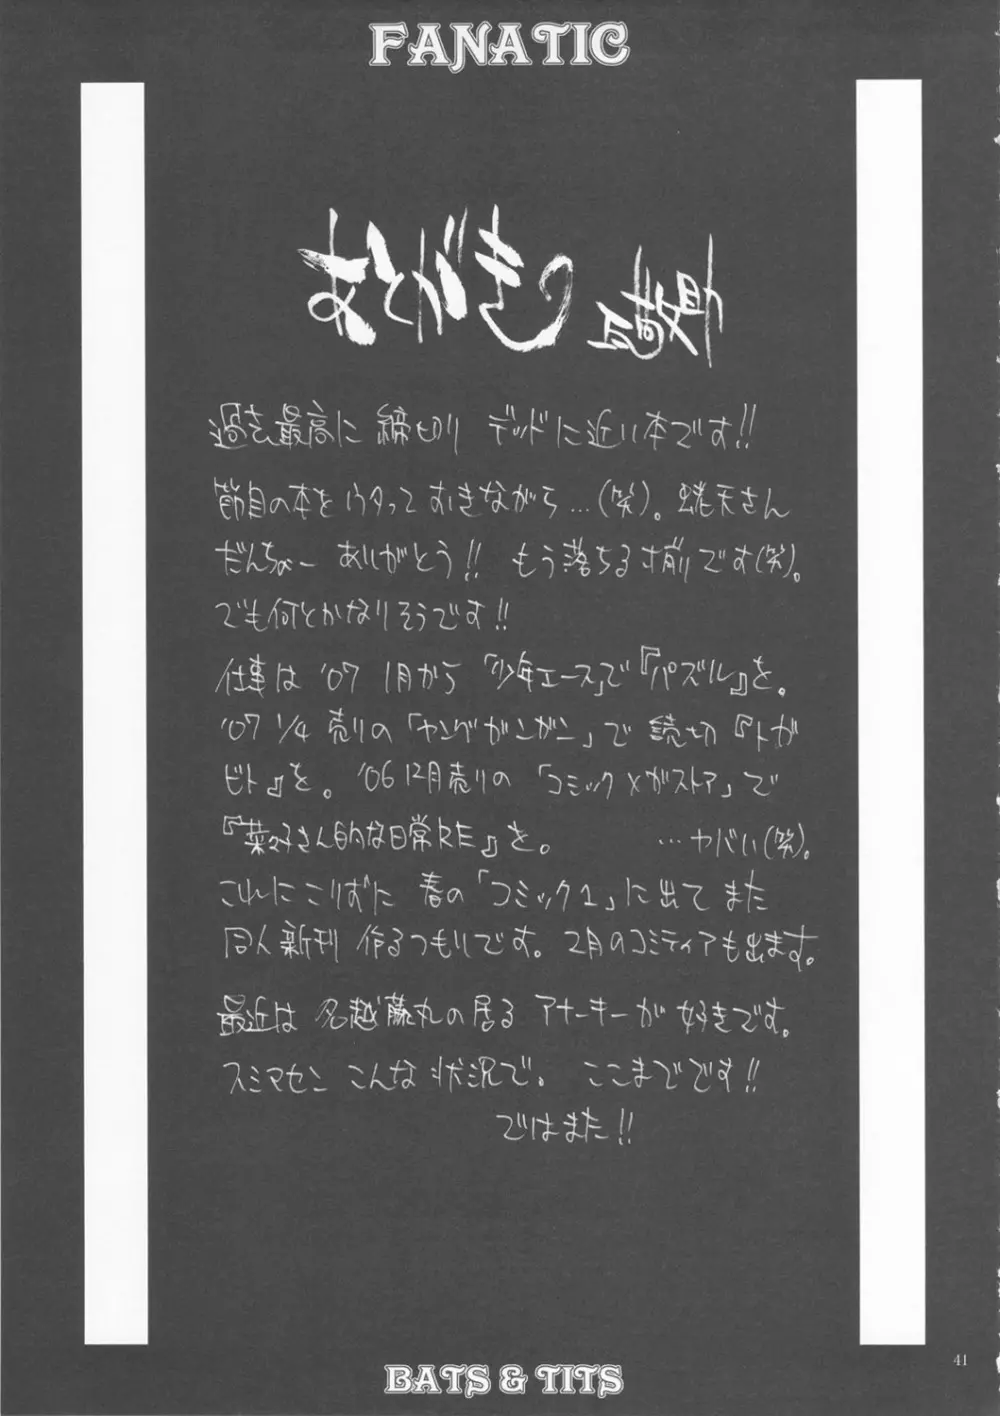 FANATIC
あとがき 瓦敬助
過去最高に 締切り デッドに近い本です!!
節目の本を
だんちょー ありがとう!! もう落ちる寸前です(笑)。
でも何とかなりそうです!!
仕事は '07 1月から 「少年エース」で『パズル』を。
'07 1/4 売りの「ヤングガンガン」で 読切『トガ
ビト』を。 '06 12月売りの 「コミック×ガストア」で
『菜々子さん的な日常RE』を。 …ヤバい(笑)。
これにこりずに 春の「コミック1」に出て また
同人新刊 作るつもりです。2月のコミティアも出ます。
最近は 名越藤丸の居る アナーキーが 好きです。
スミマセン こんな 状況で。 ここまでです!!
ではまた!!
BATS & TITS
41